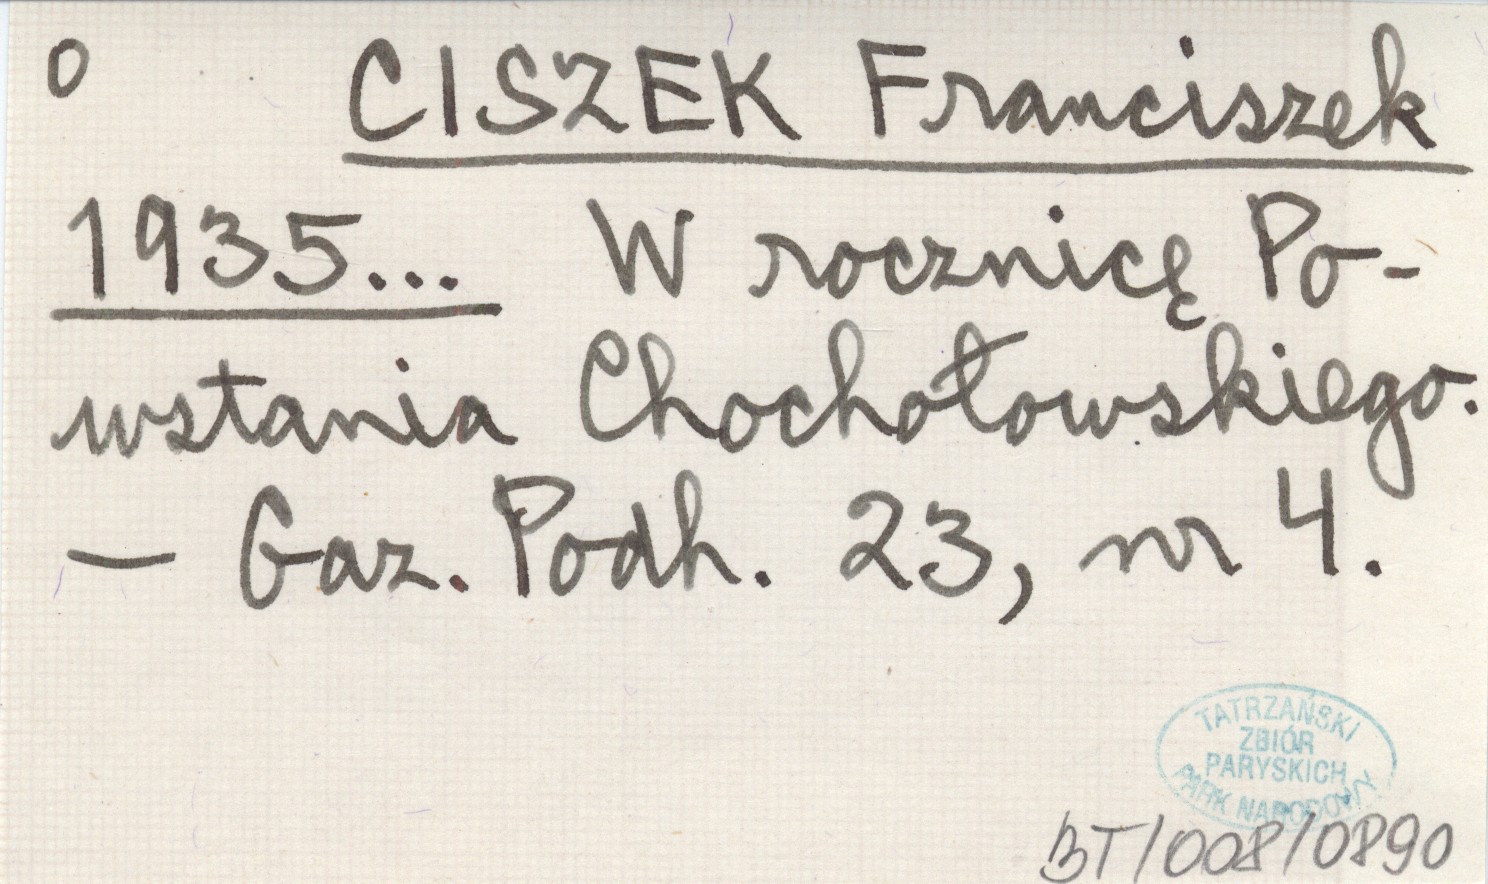 o CISZEK Franciszek
1935... W rocznicę Po-
wstania Chochołowskiego.
— Gaz. Podh. 23, nr 4.
TATRZAŃSKI
ZBIÓR
PARYSKICH
PARK NARODOWY
BT/008/0890